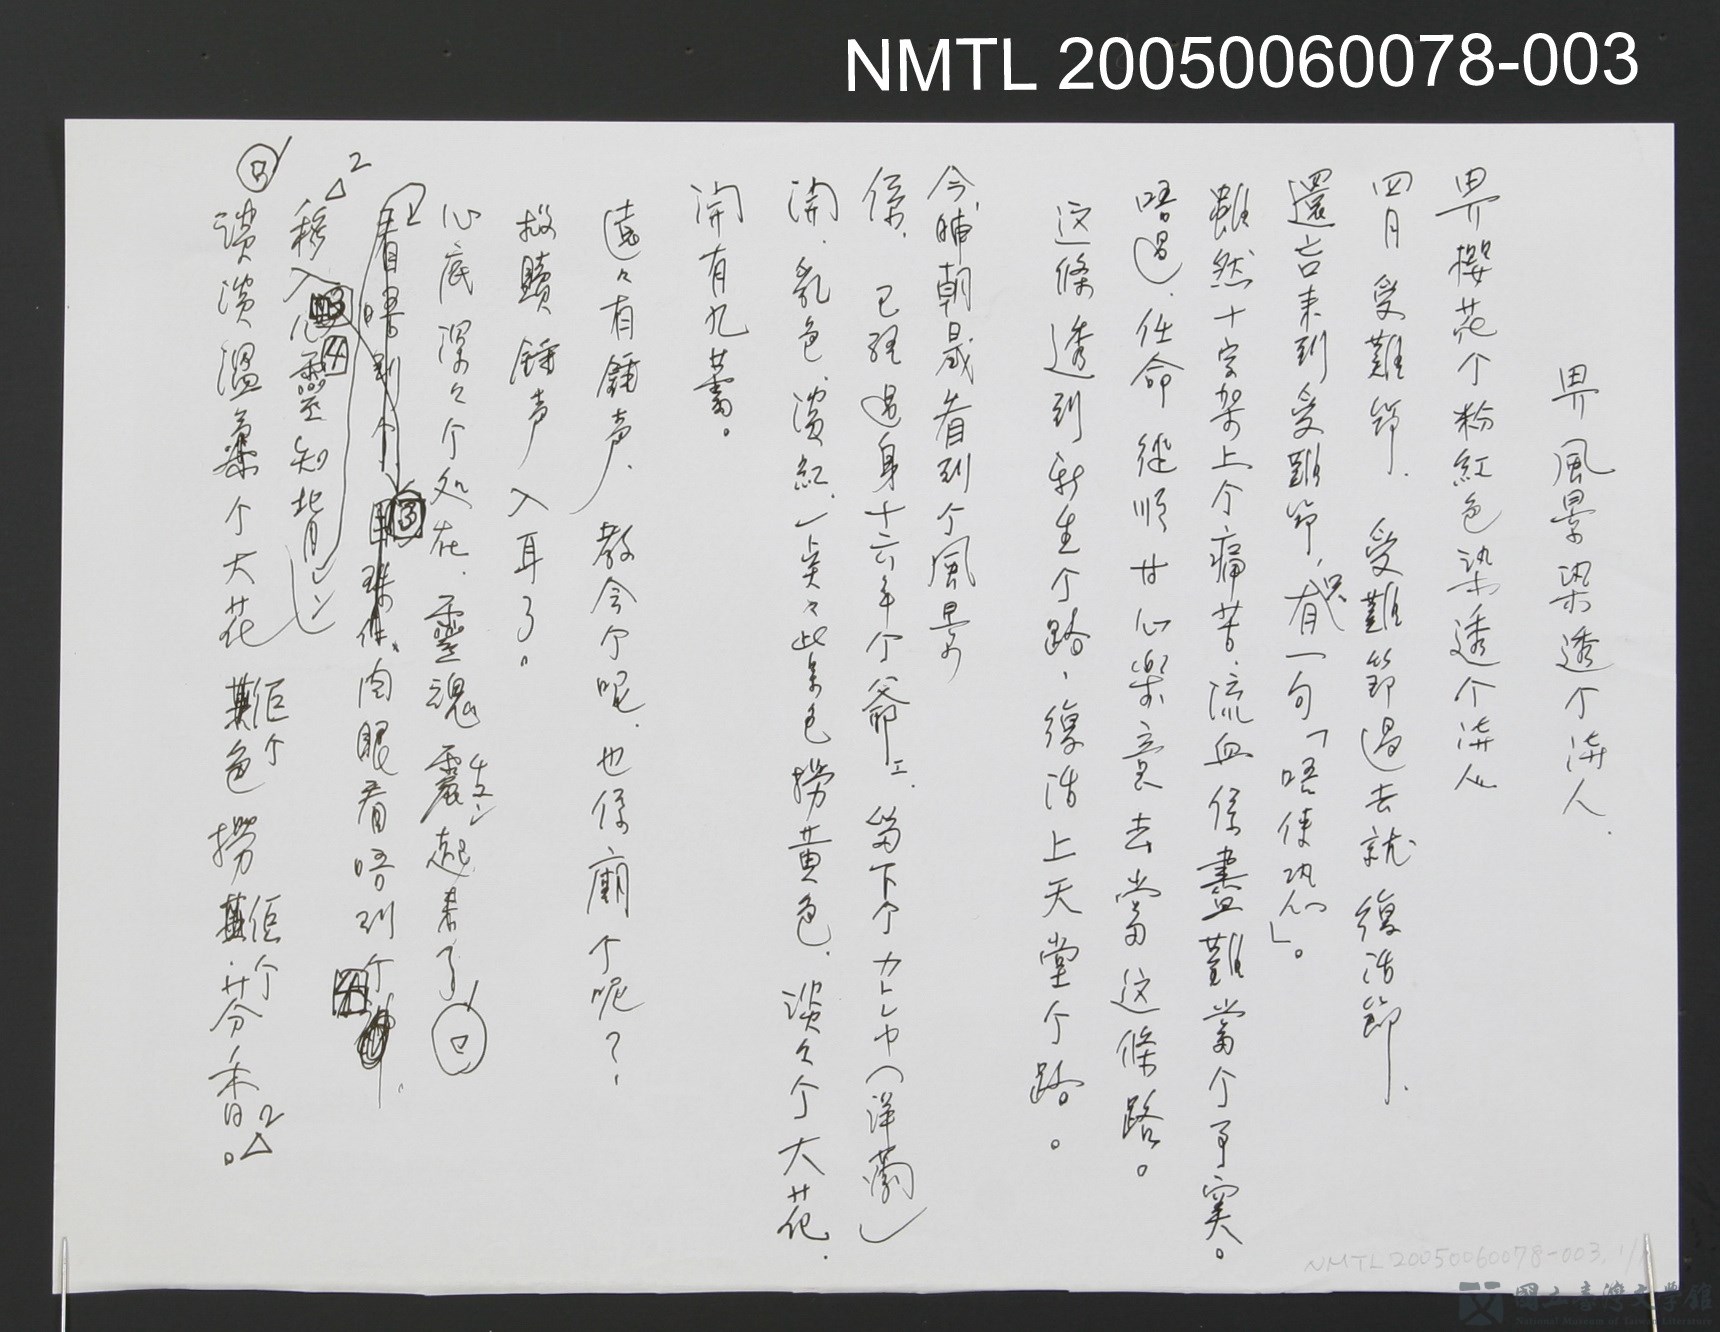 NMTL 20050060078-003
畀風景染透个淰人.
畀櫻花个粉紅色染透个
四月受難節. 受難節過去就復活節.
還言來到受難節,只有一句「唔使功心」。
雖然十字架上个痛苦、流血係盡難當个事實。
唔過、任命 從順 甘心樂意去當這條路。
这條透到新生个路,復活上天堂个路。
今晡朝晨看到个風景
係. 已經過身十六年个爺工. 留下个カトレヤ(洋蘭)
開. 乳色. 淡紅. 一臭々紫色撈黃色. 淡々个大花.
開有九蕾。
遠々有鐘声. 教会个呢. 也係廟个呢?.
救贖鐘声 入耳了。
心底深々个処在. 靈魂震起來了
看唔到个 肉眼看唔到个
移入心靈知背
淡淡溫柔个大花 佢个色撈佢个芬香。
NMTL 20050060078-003, 1/1
國立臺灣文學館
National Museum of Taiwan Literature